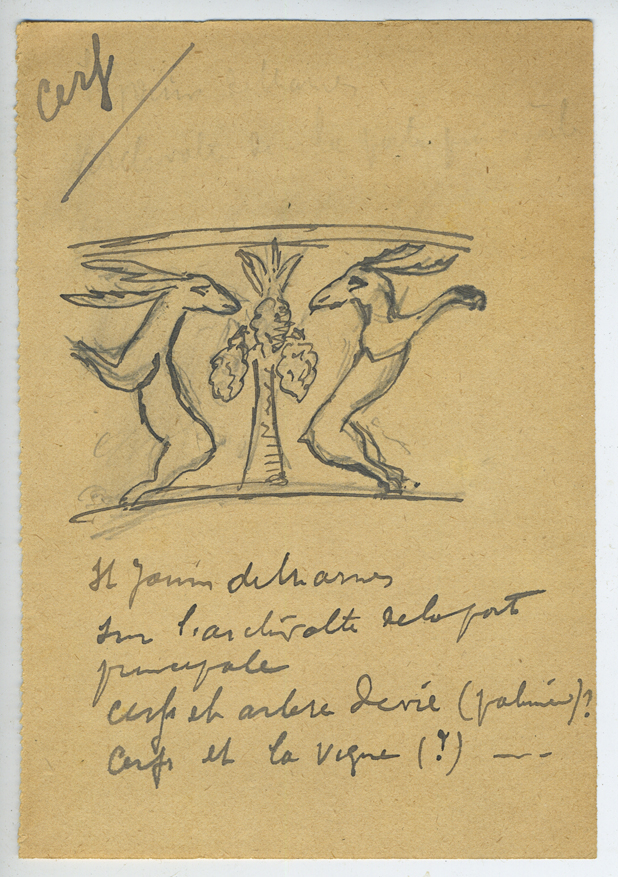 cerf
St Jouin de Marnes
sur l'archivolte de la porte
principale
cerfs et arbre de vie (palmier)?
Cerfs et la vigne (?) ---